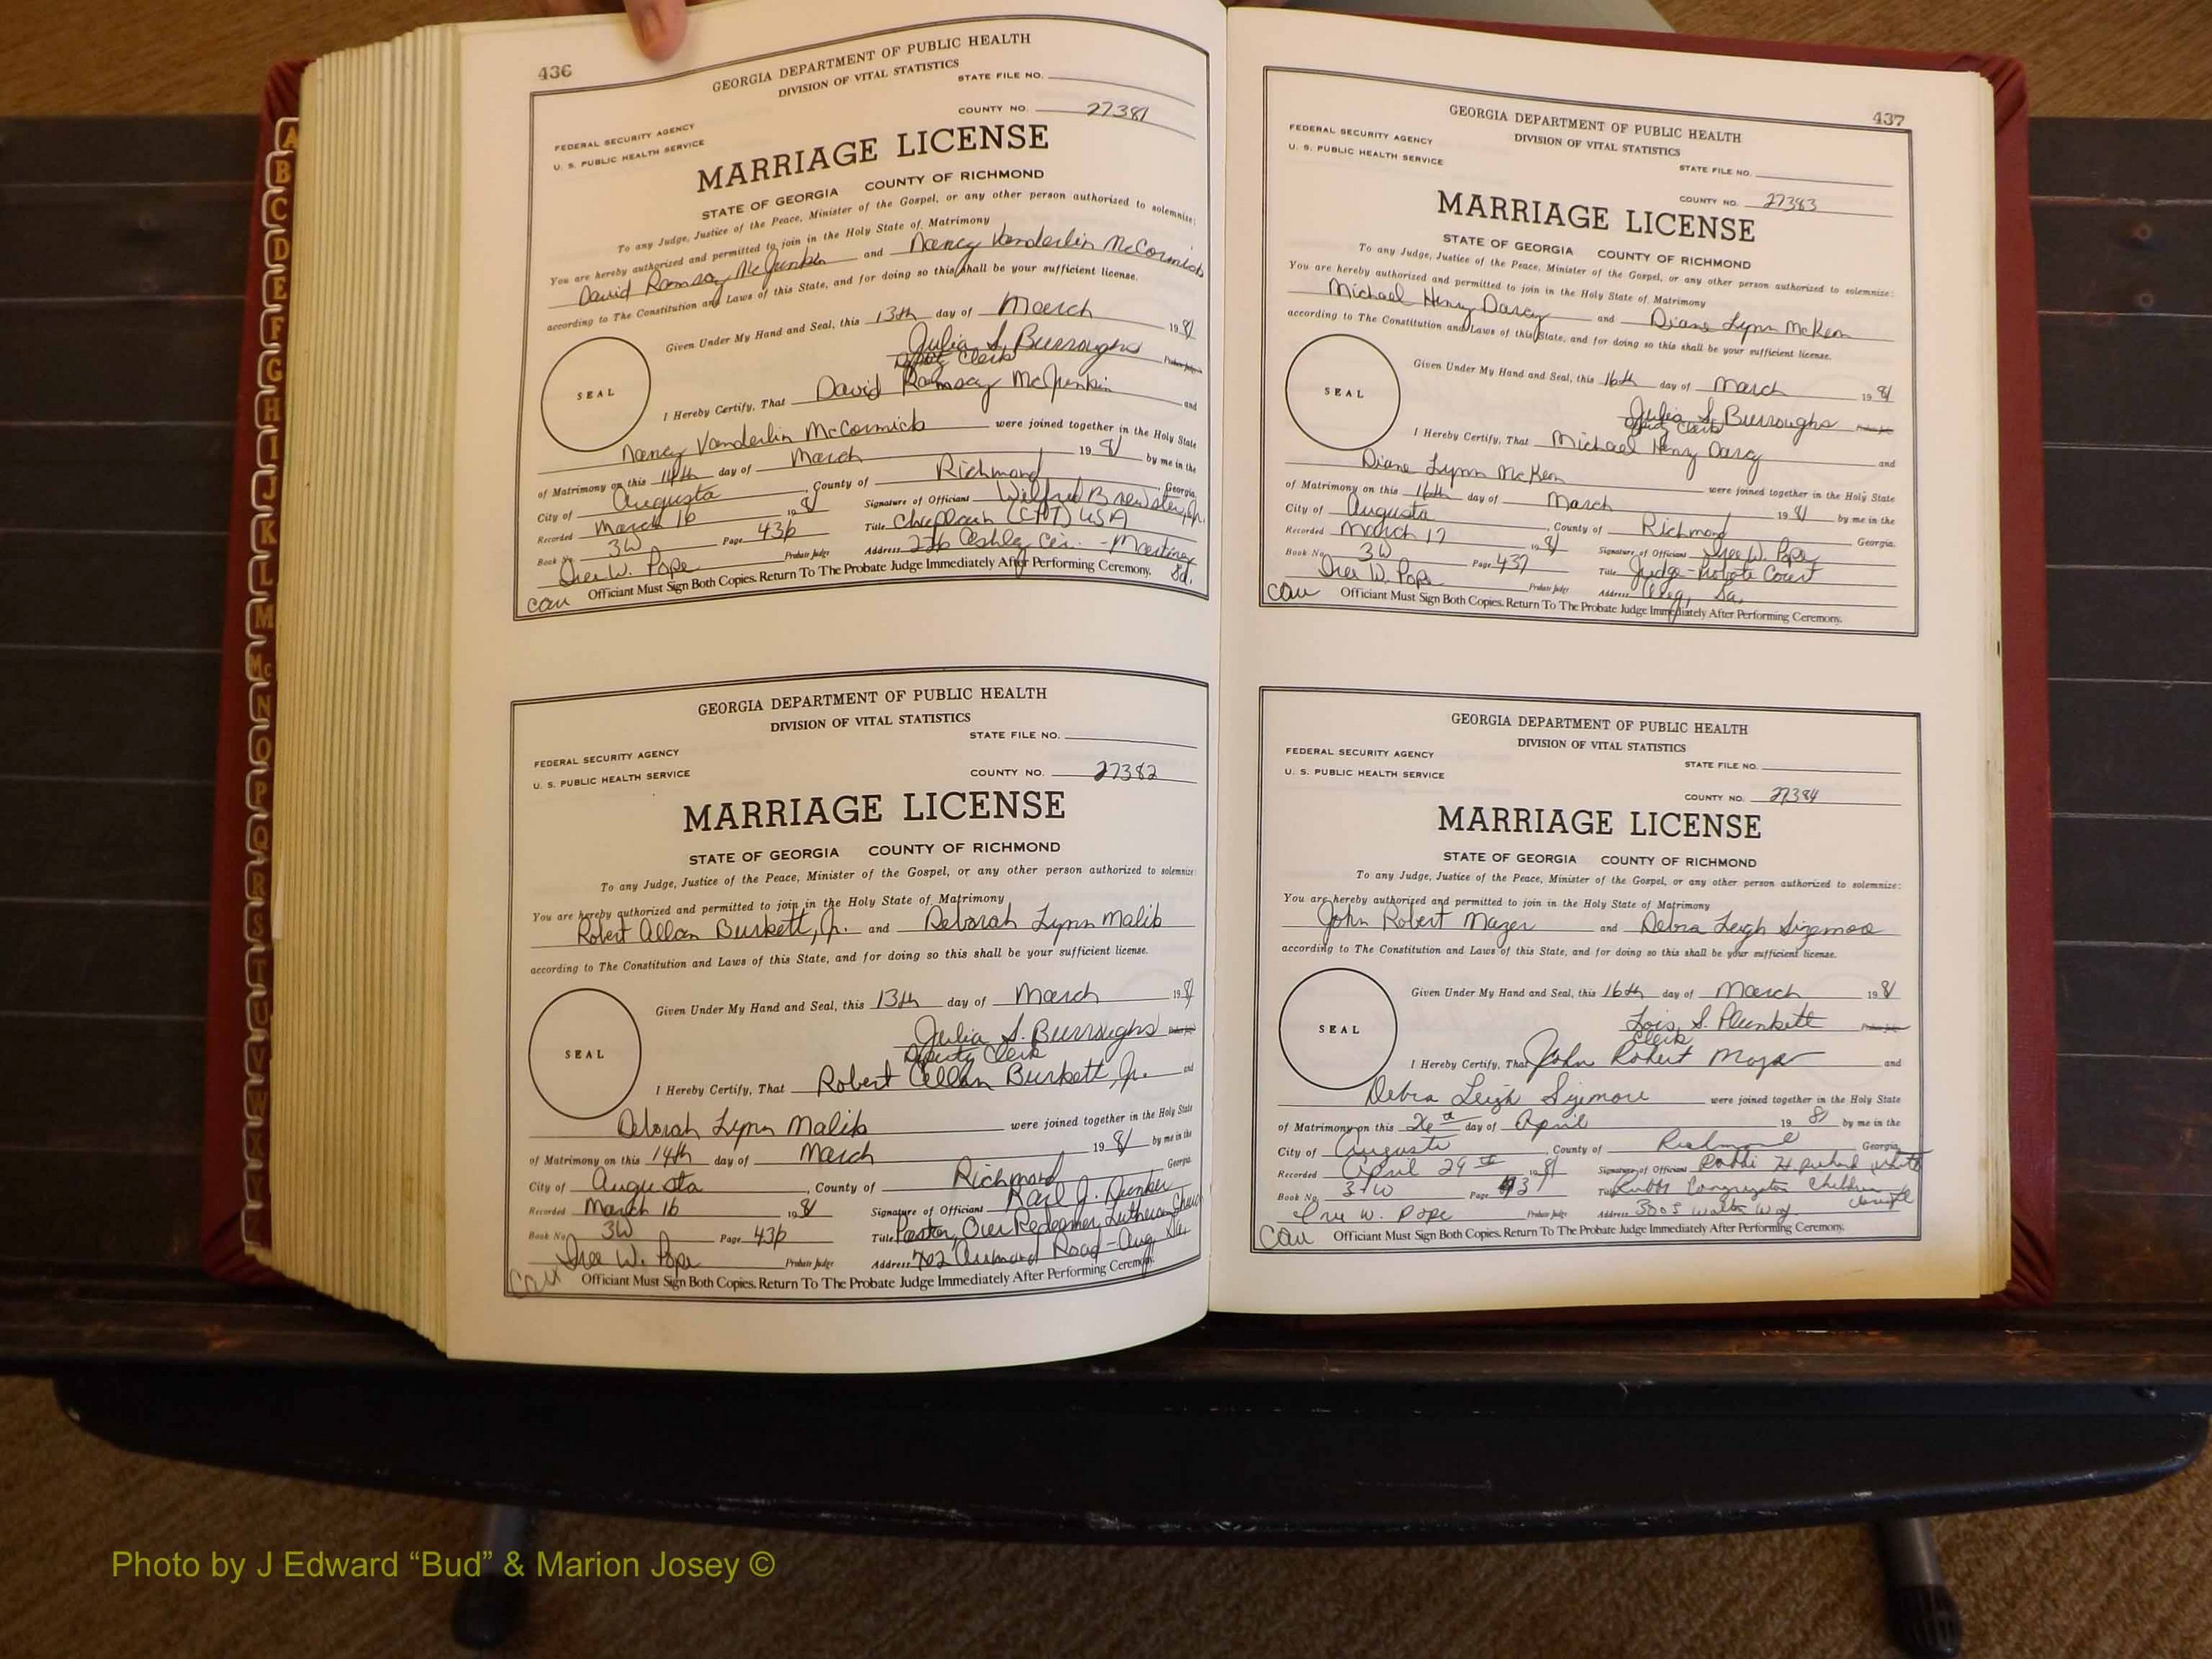 436
GEORGIA DEPARTMENT OF PUBLIC HEALTH
DIVISION OF VITAL STATISTICS
STATE FILE NO.
COUNTY NO. 27381
FEDERAL SECURITY AGENCY
U. S. PUBLIC HEALTH SERVICE
MARRIAGE LICENSE
STATE OF GEORGIA COUNTY OF RICHMOND
To any Judge, Justice of the Peace, Minister of the Gospel, or any other person authorized to solemnize:
You are hereby authorized and permitted to join in the Holy State of Matrimony
David Ramsay McJunkin and Nancy Vanderlin McCormick
according to The Constitution and Laws of this State, and for doing so this shall be your sufficient license.
Given Under My Hand and Seal, this 13th day of March 1981
Julia S. Burroughs Probate Judge
Deputy Clerk
SEAL
I Hereby Certify, That David Ramsay McJunkin and
Nancy Vanderlin McCormick were joined together in the Holy State
of Matrimony on this 14th day of March 1981 by me in the
City of Augusta, County of Richmond, Georgia.
Recorded March 16 1981 Signature of Officiant Wilfred Brewster, Jr.
Book No. 3W Page 436 Title Chaplain (CPT) USA
Ira W. Pope Probate Judge Address 226 Ashley Cir. - Martinez, Ga.
Officiant Must Sign Both Copies. Return To The Probate Judge Immediately After Performing Ceremony.
GEORGIA DEPARTMENT OF PUBLIC HEALTH
DIVISION OF VITAL STATISTICS
STATE FILE NO.
FEDERAL SECURITY AGENCY
U. S. PUBLIC HEALTH SERVICE
COUNTY NO. 27382
MARRIAGE LICENSE
STATE OF GEORGIA COUNTY OF RICHMOND
To any Judge, Justice of the Peace, Minister of the Gospel, or any other person authorized to solemnize:
You are hereby authorized and permitted to join in the Holy State of Matrimony
Robert Allan Burkett, Jr. and Deborah Lynn Malik
according to The Constitution and Laws of this State, and for doing so this shall be your sufficient license.
Given Under My Hand and Seal, this 13th day of March 1981
Julia S. Burroughs Probate Judge
Deputy Clerk
SEAL
I Hereby Certify, That Robert Allan Burkett, Jr. and
Deborah Lynn Malik were joined together in the Holy State
of Matrimony on this 14th day of March 1981 by me in the
City of Augusta, County of Richmond Georgia
Recorded March 16 1981 Signature of Officiant Karl J. Dunker
Book No. 3W Page 436 Title Pastor, Our Redeemer Lutheran Church
Ira W. Pope Probate Judge Address 402 Aumond Road - Aug. Ga.
Officiant Must Sign Both Copies. Return To The Probate Judge Immediately After Performing Ceremony.
437
GEORGIA DEPARTMENT OF PUBLIC HEALTH
DIVISION OF VITAL STATISTICS
FEDERAL SECURITY AGENCY
U. S. PUBLIC HEALTH SERVICE
STATE FILE NO.
COUNTY NO. 27383
MARRIAGE LICENSE
STATE OF GEORGIA COUNTY OF RICHMOND
To any Judge, Justice of the Peace, Minister of the Gospel, or any other person authorized to solemnize:
You are hereby authorized and permitted to join in the Holy State of Matrimony
Michael Henry Darcy and Diane Lynn McKeon
according to The Constitution and Laws of this State, and for doing so this shall be your sufficient license.
Given Under My Hand and Seal, this 16th day of March 1981
Julia S. Burroughs
Deputy Clerk
SEAL
I Hereby Certify, That Michael Henry Darcy and
Diane Lynn McKeon were joined together in the Holy State
of Matrimony on this 16th day of March 1981 by me in the
City of Augusta, County of Richmond Georgia.
Recorded March 17 1981 Signature of Officiant Ira W. Pope
Book No. 3W Page 437 Title Judge - Probate Court
Ira W. Pope Probate Judge Address Aug, Ga.
Officiant Must Sign Both Copies. Return To The Probate Judge Immediately After Performing Ceremony.
GEORGIA DEPARTMENT OF PUBLIC HEALTH
DIVISION OF VITAL STATISTICS
FEDERAL SECURITY AGENCY
U. S. PUBLIC HEALTH SERVICE
STATE FILE NO.
COUNTY NO. 27384
MARRIAGE LICENSE
STATE OF GEORGIA COUNTY OF RICHMOND
To any Judge, Justice of the Peace, Minister of the Gospel, or any other person authorized to solemnize:
You are hereby authorized and permitted to join in the Holy State of Matrimony
John Robert Mazer and Debra Leigh Sizemore
according to The Constitution and Laws of this State, and for doing so this shall be your sufficient license.
Given Under My Hand and Seal, this 16th day of March 1981
Lois S. Plunkett
Clerk
SEAL
I Hereby Certify, That John Robert Mazer and
Debra Leigh Sizemore were joined together in the Holy State
of Matrimony on this 26th day of April 1981 by me in the
City of Augusta, County of Richmond Georgia
Recorded April 29th 1981 Signature of Officiant Rabbi H Richard White
Book No. 3-W Page 437 Title Rabbi Congregation Children
Ira W. Pope Probate Judge Address 3005 Walton Way
Officiant Must Sign Both Copies. Return To The Probate Judge Immediately After Performing Ceremony.
A
B
C
D
E
F
G
H
I
J
K
L
M
Mc
N
O
P
Q
R
S
T
U
V
W
X
Y
Z
Photo by J Edward “Bud” & Marion Josey ©